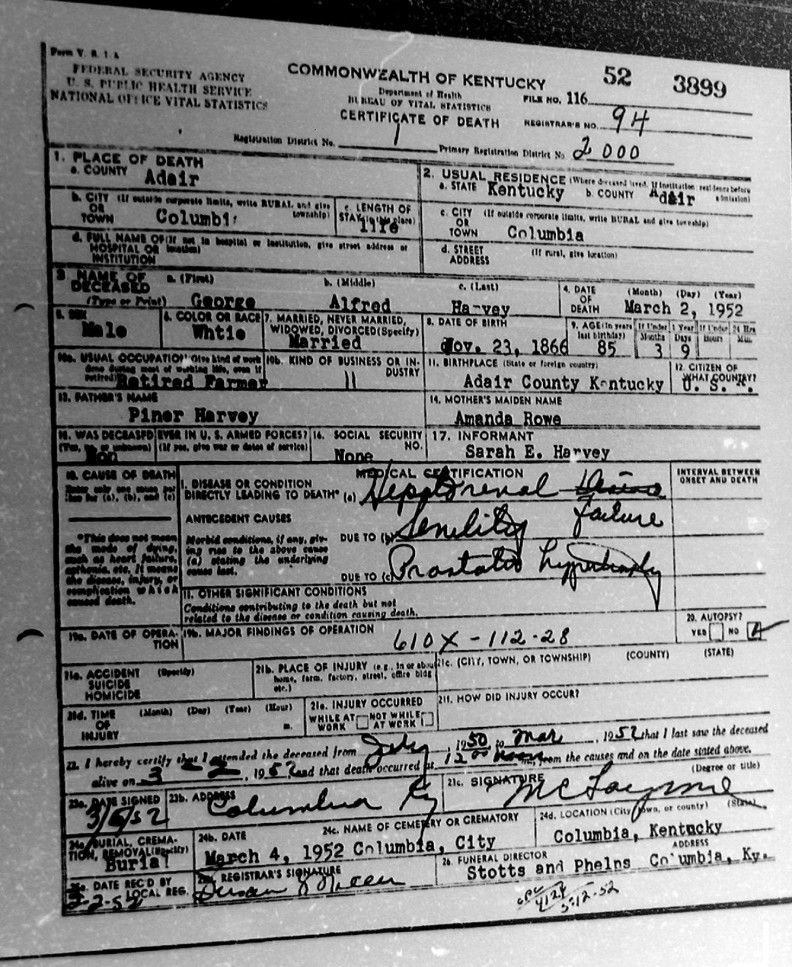 Form V. S. 1 A
FEDERAL SECURITY AGENCY
U. S. PUBLIC HEALTH SERVICE
NATIONAL OFFICE VITAL STATISTICS
COMMONWEALTH OF KENTUCKY
Department of Health
BUREAU OF VITAL STATISTICS
CERTIFICATE OF DEATH
52 3899
FILE NO. 116
REGISTRAR'S NO. 94
Registration District No. 1 Primary Registration District No. 2000
1. PLACE OF DEATH
a. COUNTY Adair
2. USUAL RESIDENCE (Where deceased lived. If institution: residence before admission)
a. STATE Kentucky b. COUNTY Adair
b. CITY (If outside corporate limits, write RURAL and give township) OR TOWN Columbi
c. LENGTH OF STAY (in this place) life
c. CITY (If outside corporate limits, write RURAL and give township) OR TOWN Columbia
d. FULL NAME OF (If not in hospital or institution, give street address or location) HOSPITAL OR INSTITUTION
d. STREET ADDRESS (If rural, give location)
3. NAME OF DECEASED (Type or Print)
a. (First) George
b. (Middle) Alfred
c. (Last) Harvey
4. DATE OF DEATH (Month) (Day) (Year) March 2, 1952
5. SEX Male
6. COLOR OR RACE Whtie
7. MARRIED, NEVER MARRIED, WIDOWED, DIVORCED (Specify) Married
8. DATE OF BIRTH Nov. 23, 1866
9. AGE (In years last birthday) 85
If Under 1 Year Months 3 Days 9
If Under 24 Hrs Hours Min.
10a. USUAL OCCUPATION (Give kind of work done during most of working life, even if retired) Retired Farmer
10b. KIND OF BUSINESS OR INDUSTRY "
11. BIRTHPLACE (State or foreign country) Adair County Kentucky
12. CITIZEN OF WHAT COUNTRY? U. S.
13. FATHER'S NAME Piner Harvey
14. MOTHER'S MAIDEN NAME Amanda Rowe
15. WAS DECEASED EVER IN U. S. ARMED FORCES? (Yes, no or unknown) (If yes, give war or dates of service) Non
16. SOCIAL SECURITY NO. None
17. INFORMANT Sarah E. Harvey
18. CAUSE OF DEATH
Enter only one cause per line for (a), (b), and (c)
MEDICAL CERTIFICATION
INTERVAL BETWEEN ONSET AND DEATH
I. DISEASE OR CONDITION DIRECTLY LEADING TO DEATH* (a) Hepatorenal Failure
ANTECEDENT CAUSES
*This does not mean the mode of dying, such as heart failure, asthenia, etc. It means the disease, injury, or complication which caused death.
Morbid conditions, if any, giving rise to the above cause (a) stating the underlying cause last.
DUE TO (b) Senility
DUE TO (c) Prostatic hypertrophy
II. OTHER SIGNIFICANT CONDITIONS
Conditions contributing to the death but not related to the disease or condition causing death.
19a. DATE OF OPERATION
19b. MAJOR FINDINGS OF OPERATION
610X-112-28
20. AUTOPSY? YES NO
21a. ACCIDENT SUICIDE HOMICIDE (Specify)
21b. PLACE OF INJURY (e.g., in or about home, farm, factory, street, office bldg etc.)
21c. (CITY, TOWN, OR TOWNSHIP) (COUNTY) (STATE)
21d. TIME OF INJURY (Month) (Day) (Year) (Hour) m.
21e. INJURY OCCURRED WHILE AT WORK NOT WHILE AT WORK
21f. HOW DID INJURY OCCUR?
22. I hereby certify that I attended the deceased from July, 1950 to Mar, 1952 that I last saw the deceased
alive on 3-2, 1952 and that death occurred at 12 00 m., from the causes and on the date stated above.
23a. DATE SIGNED 3/6/52
23b. ADDRESS Columbia Ky
21c. SIGNATURE (Degree or title)
24a. BURIAL, CREMATION, REMOVAL (Specify) Burial
24b. DATE March 4, 1952
24c. NAME OF CEMETERY OR CREMATORY Columbia, City
24d. LOCATION (City, town, or county) (State) Columbia, Kentucky
DATE REC'D BY LOCAL REG.
REGISTRAR'S SIGNATURE
26. FUNERAL DIRECTOR ADDRESS
Stotts and Phelps Columbia, Ky.
5-12-52